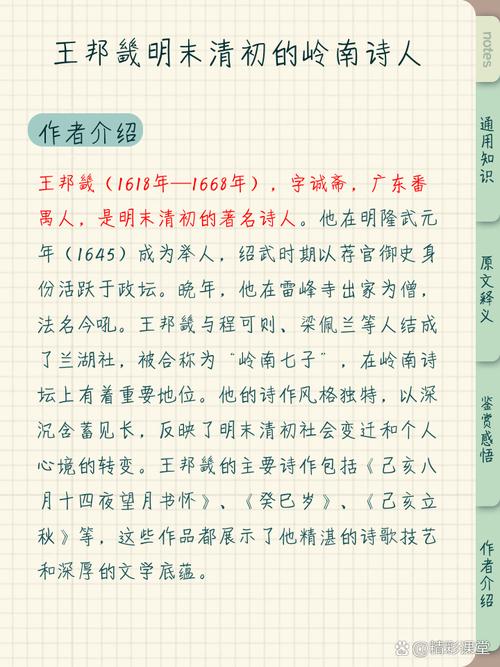 王邦畿明末清初的岭南诗人
notes
作者介绍
王邦畿（1618年—1668年），字诚斋，广东番
禺人，是明末清初的著名诗人。他在明隆武元
年（1645）成为举人，绍武时期以荐官御史身
份活跃于政坛。晚年，他在雷峰寺出家为僧，
法名今吼。王邦畿与程可则、梁佩兰等人结成
了兰湖社，被合称为“岭南七子”，在岭南诗
坛上有着重要地位。他的诗作风格独特，以深
沉含蓄见长，反映了明末清初社会变迁和个人
心境的转变。王邦畿的主要诗作包括《己亥八
月十四夜望月书怀》、《癸巳岁》、《己亥立
秋》等，这些作品都展示了他精湛的诗歌技艺
和深厚的文学底蕴。
通用知识
原文释义
鉴赏感悟
作者介绍
@精彩课堂